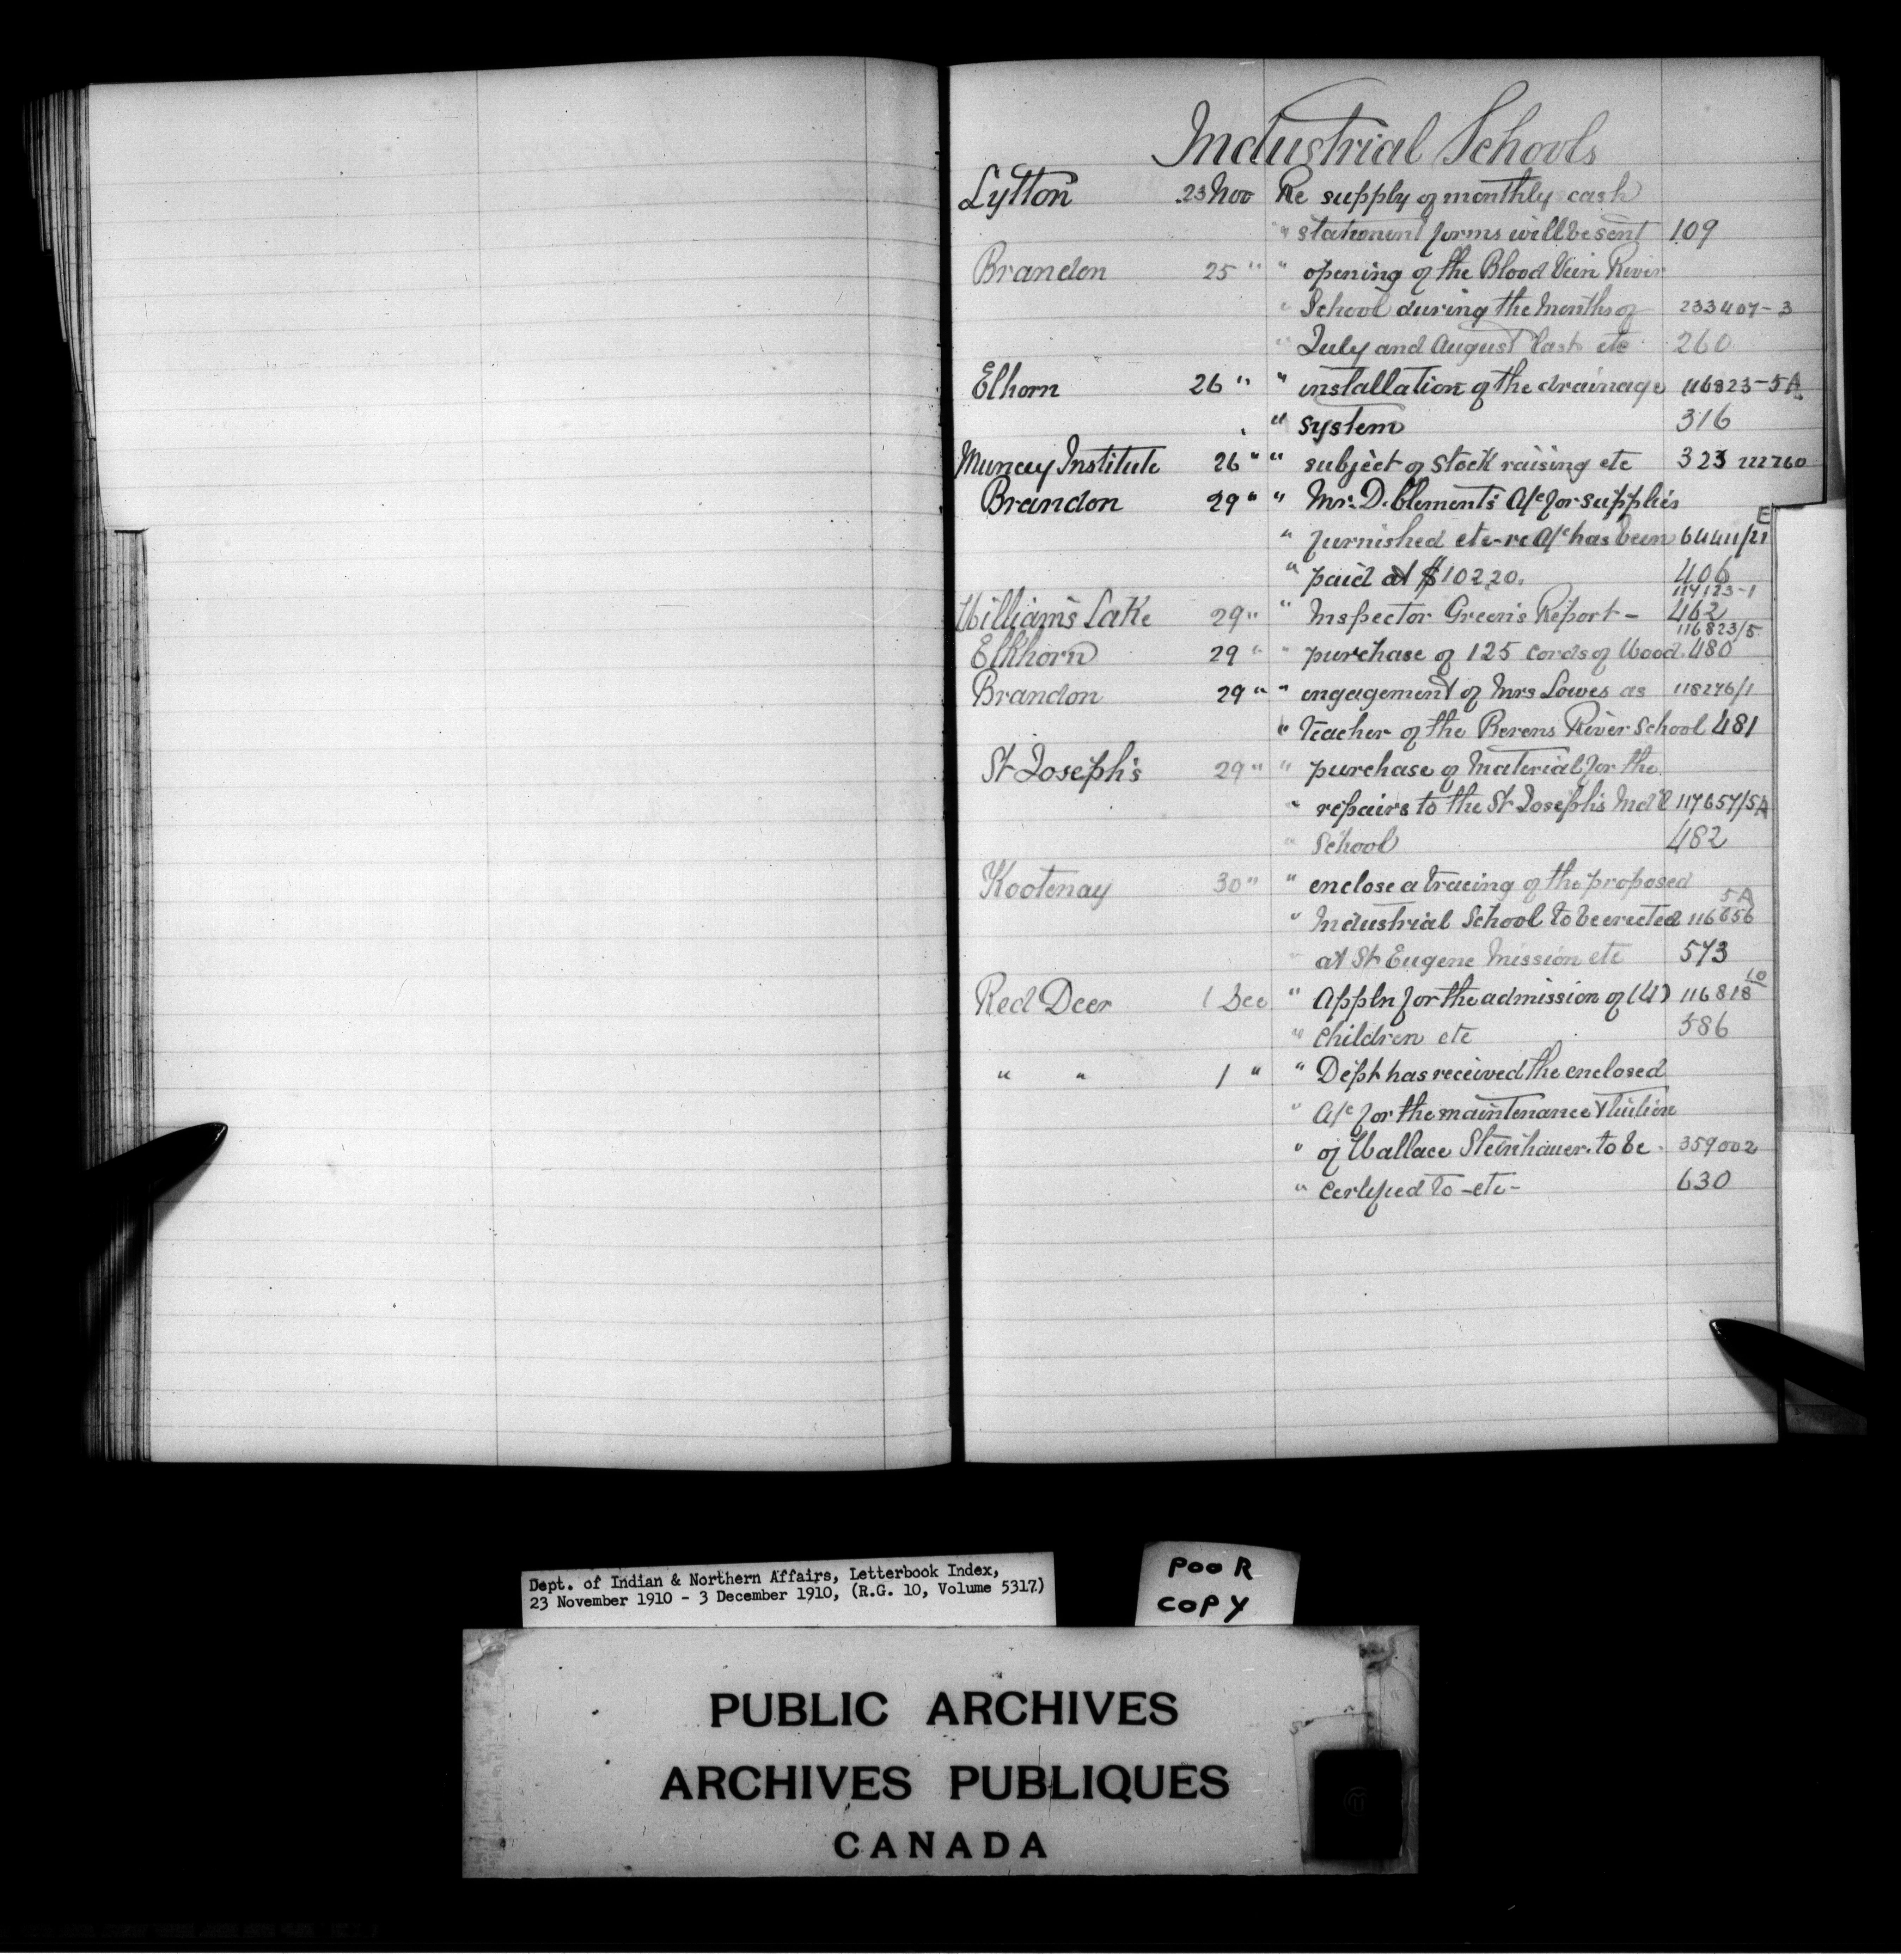 Industrial Schools
Lytton 23 Nov Re supply of monthly cash
" statement forms will be sent 109
Brandon 25 " " opening of the Blood Vein River
" School during the Months of 233407-3
" July and August last etc 260
Elhorn 26 " " installation of the drainage 116823-5A
" system 316
Muncey Institute 26 " " subject of stock raising etc 323 222260
Brandon 29 " " Mr. D. Clements a/c for supplies
" furnished etc-re a/c has been 64411/21 E
" paid at $102.20. 406
Williams Lake 29 " " Inspector Green's Report - 117123-1 462
Elkhorn 29 " " purchase of 125 cords of Wood. 116823/5 480
Brandon 29 " " engagement of Mrs Lowes as 118276/1
" Teacher of the Berens River School 481
St Joseph's 29 " " purchase of Material for the
" repairs to the St Joseph's Ind'l 117657/5A
" School 482
Kootenay 30 " " enclose a tracing of the proposed
" Industrial School to be erected 116656 5A
" at St Eugene Mission etc 573
Red Deer 1 Dec " Appln for the admission of (4) 116818 10
" children etc 586
" " 1 " " Dept has received the enclosed
" a/c for the maintenance & tuition
" of Wallace Steinhauer. to be 359002
" certified to -etc- 630
Dept. of Indian & Northern Affairs, Letterbook Index,
23 November 1910 - 3 December 1910, (R.G. 10, Volume 5317)
POOR
COPY
PUBLIC ARCHIVES
ARCHIVES PUBLIQUES
CANADA